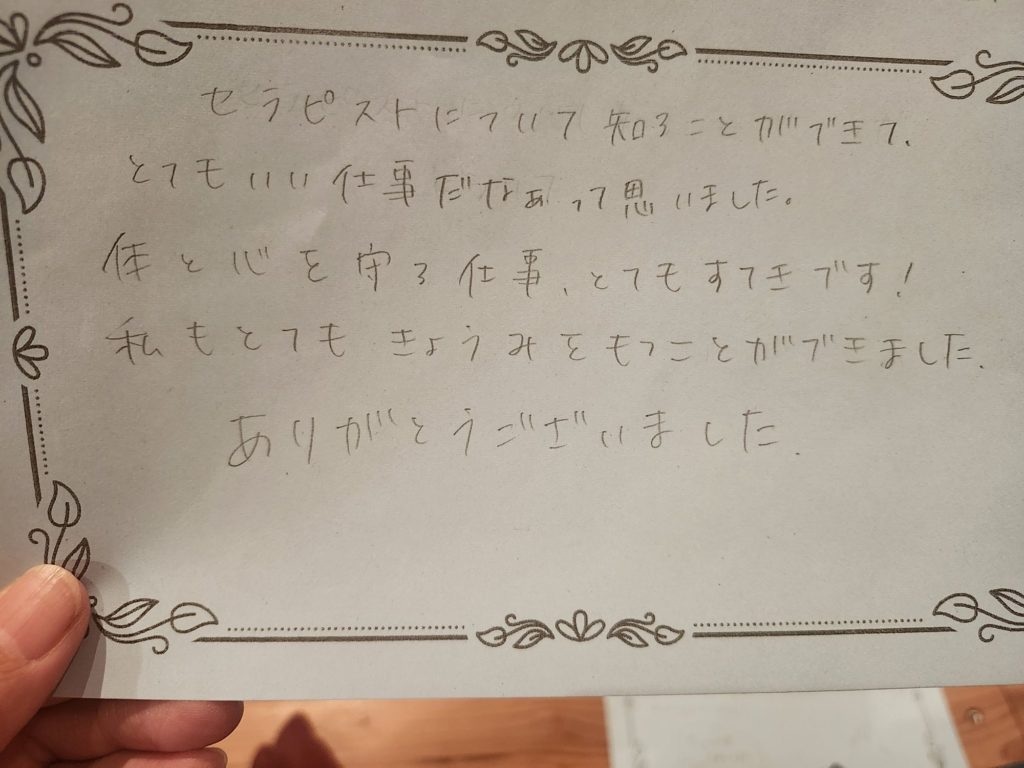 セラピストについて知ることができて、
とてもいい仕事だなぁって思いました。
体と心を守る仕事、とてもすてきです!
私もとてもきょうみをもつことができました。
ありがとうございました。